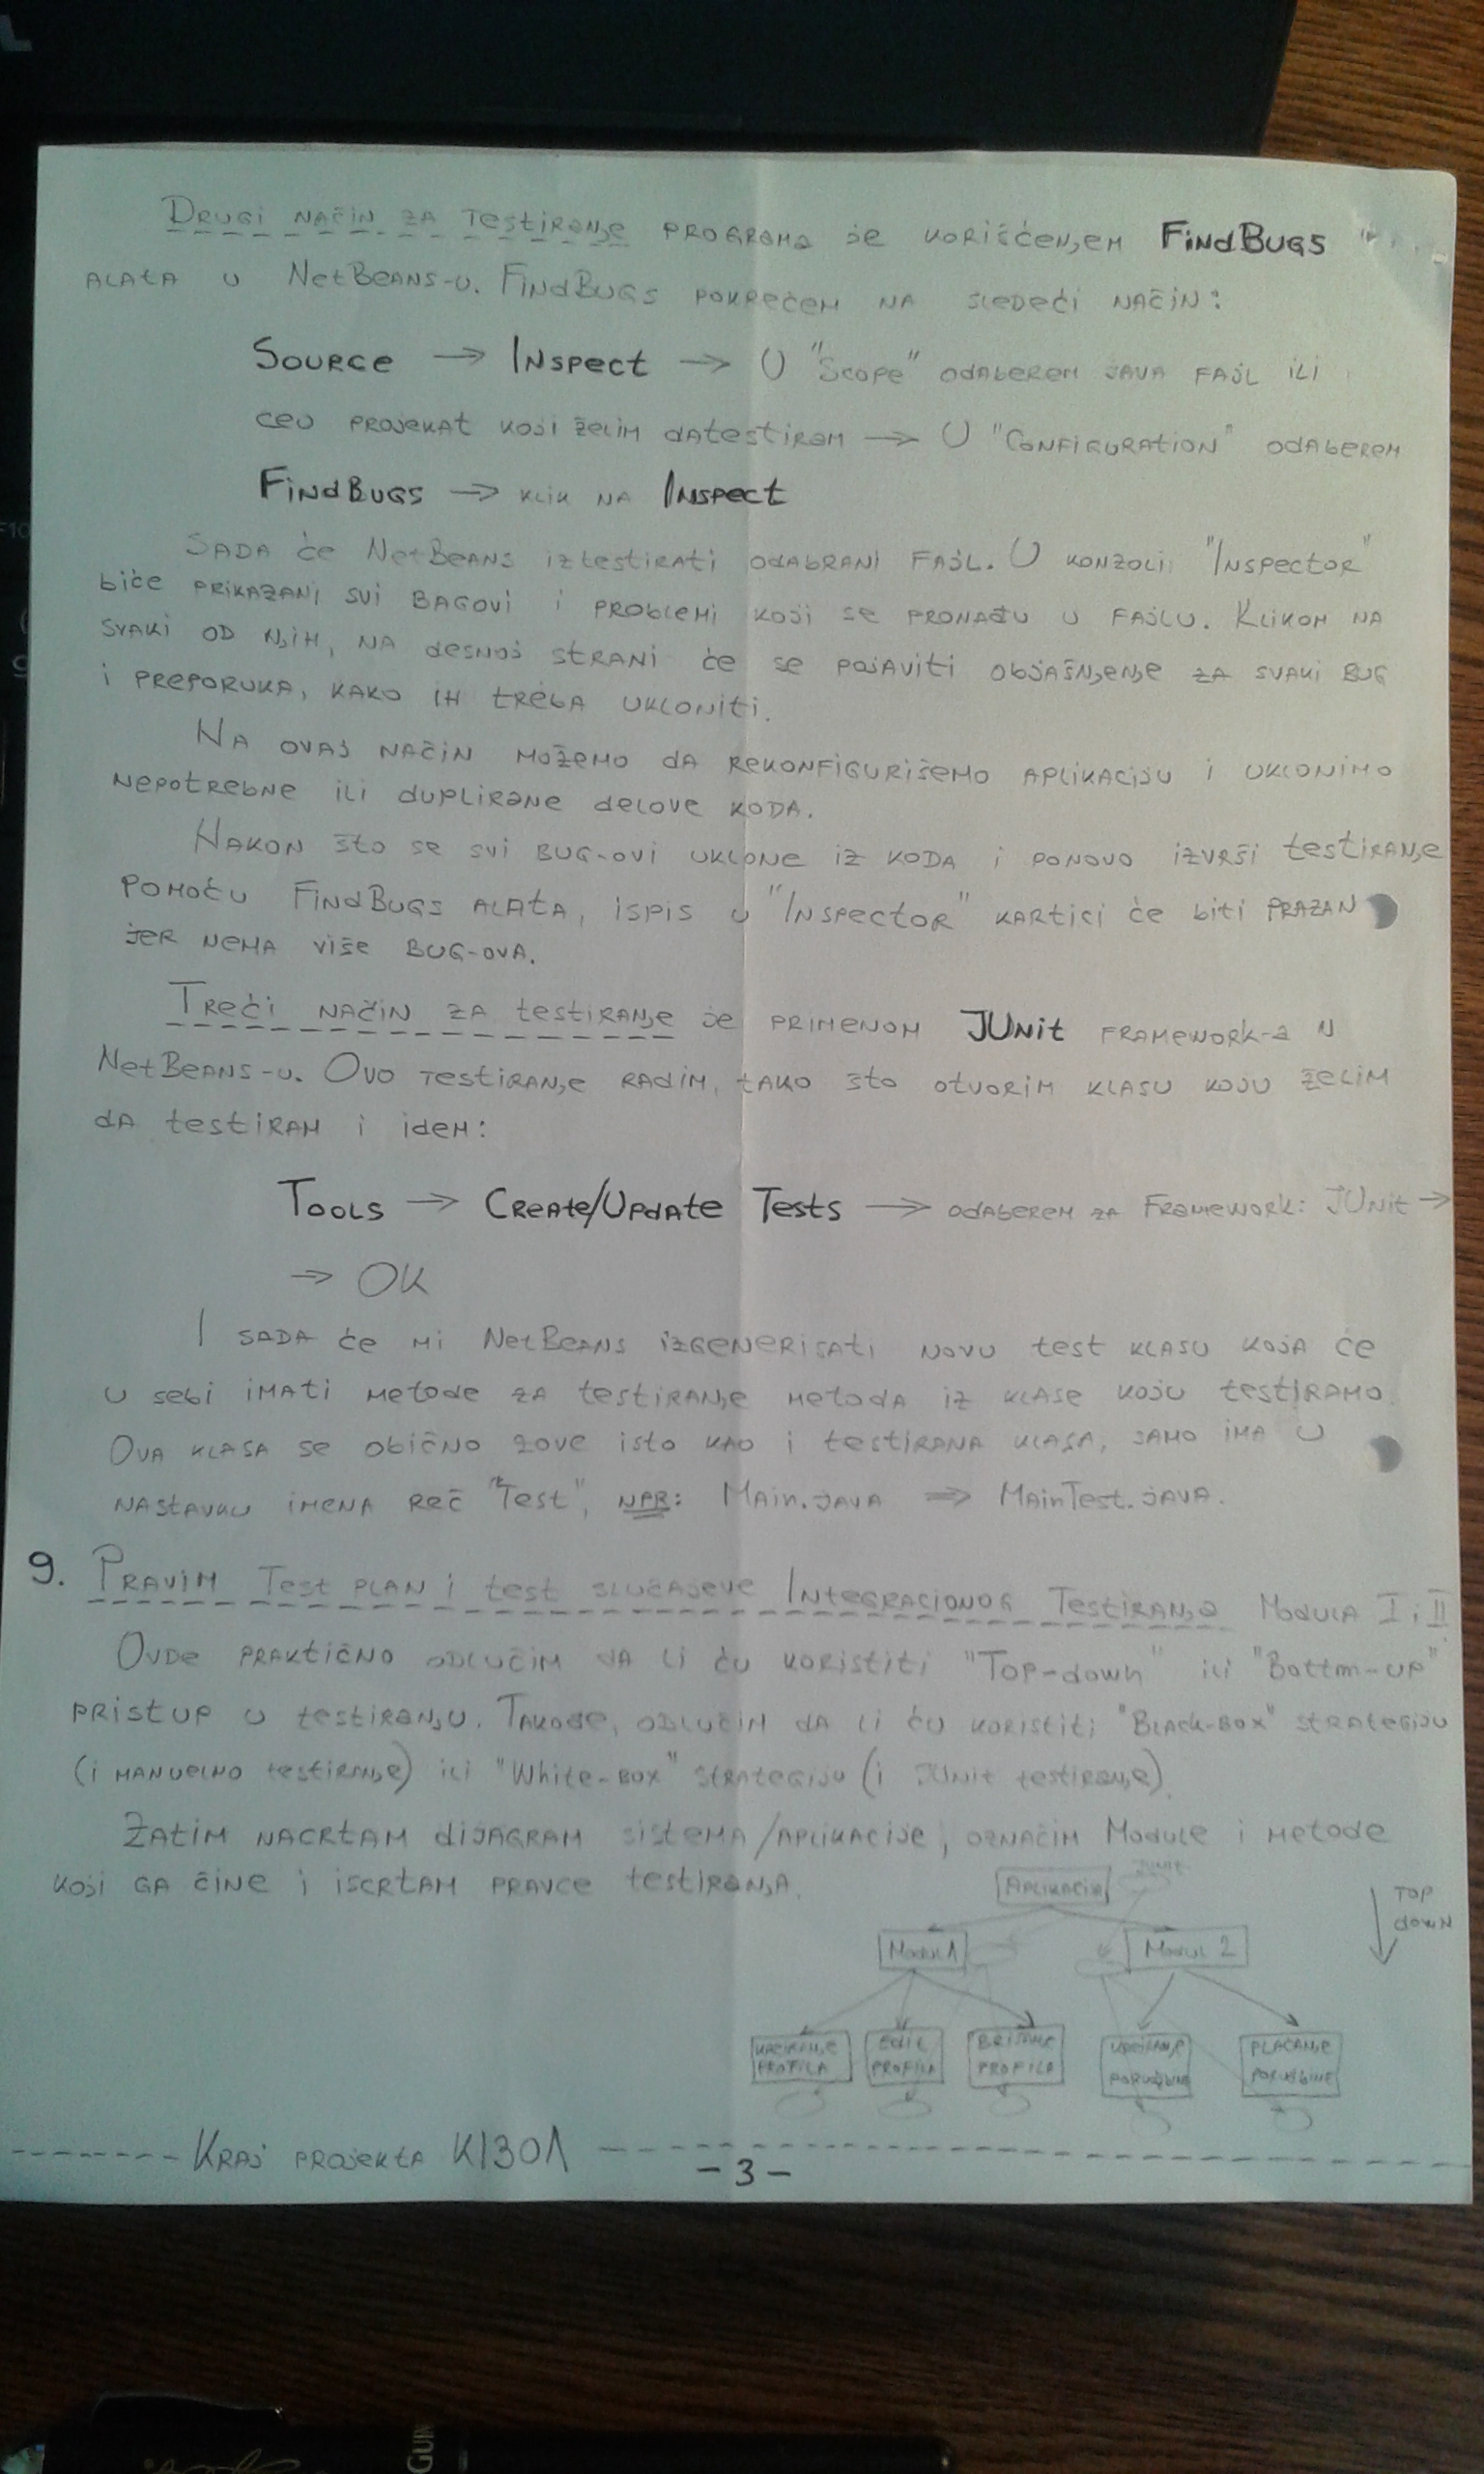 Drugi način za testiranje programa je korišćenjem FindBugs
alata u NetBeans-u. FindBugs pokrećem na sledeći način:
Source → Inspect → U "Scope" odaberem java fajl ili
ceo projekat koji želim datestiram → U "Configuration" odaberem
FindBugs → klik na Inspect
Sada će NetBeans iztestirati odabrani fajl. U konzoli "Inspector"
biće prikazani svi bagovi i problemi koji se pronađu u fajlu. Klikom na
svaki od njih, na desnoj strani će se pojaviti objašnjenje za svaki bug
i preporuka, kako ih treba ukloniti.
Na ovaj način možemo da rekonfigurišemo aplikaciju i uklonimo
nepotrebne ili duplirane delove koda.
Nakon što se svi bug-ovi uklone iz koda i ponovo izvrši testiranje
pomoću FindBugs alata, ispis u "Inspector" kartici će biti prazan
jer nema više bug-ova.
Treći način za testiranje je primenom JUnit framework-a u
NetBeans-u. Ovo testiranje radim, tako što otvorim klasu koju želim
da testiram i idem:
Tools → Create/Update Tests → odaberem za Framework: JUnit →
→ OK
I sada će mi NetBeans izgenerisati novu test klasu koja će
u sebi imati metode za testiranje metoda iz klase koju testiramo.
Ova klasa se obično zove isto kao i testirana klasa, samo ima u
nastavku imena reč "Test", npr: Main.java ⇒ MainTest.java.
9. Pravim Test plan i test slučajeve Integracionog Testiranja Modula I i II
Ovde praktično odlučim da li ću koristiti "Top-down" ili "Bottm-up"
pristup u testiranju. Takođe, odlučim da li ću koristiti "Black-box" strategiju
(i manuelno testiranje) ili "White-box" strategiju (i JUnit testiranje).
Zatim nacrtam dijagram sistema/aplikacije, označim Module i metode
koji ga čine i iscrtam pravce testiranja.
JUnit
Aplikacija
Top
down
Modul 1
Modul 2
Kreiranje
profila
Edit
profila
Brisanje
profila
Kreiranje
porudžbine
Plaćanje
porudžbine
Kraj projekta KI301
- 3 -
GUIN
F10